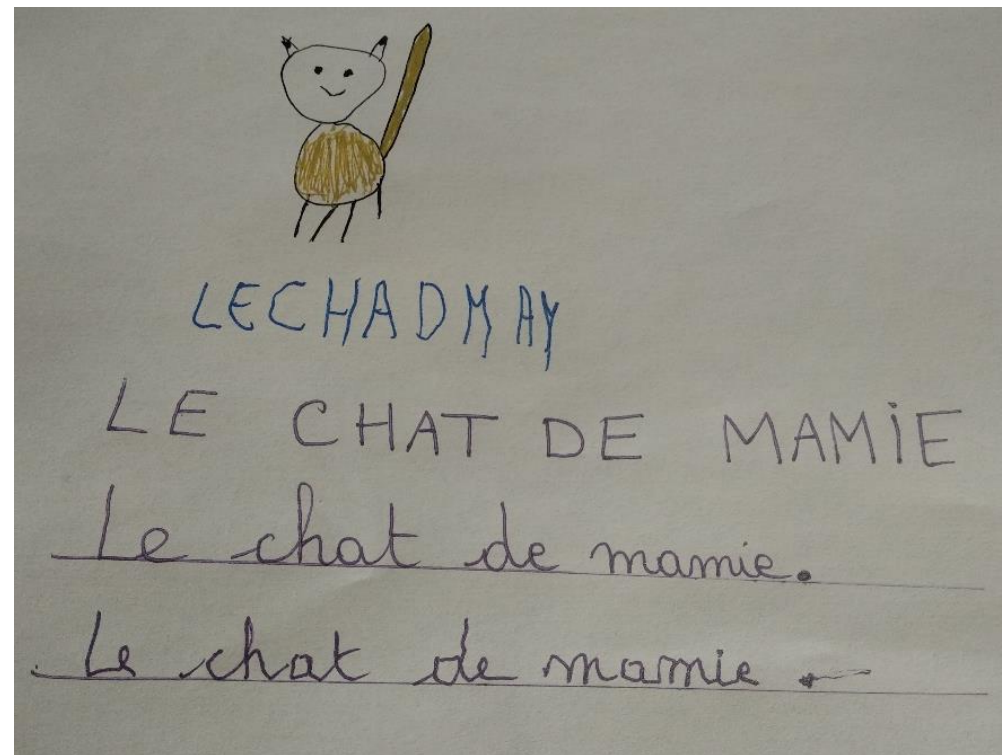 LECHADMAY
LE CHAT DE MAMiE
Le chat de mamie.
Le chat de mamie.